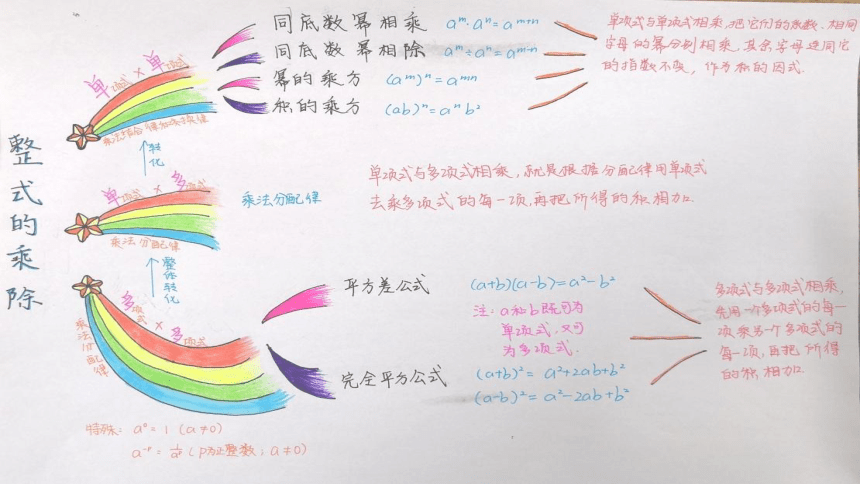 整式的乘除
单项式 × 单项式
乘法结合律和交换律
同底数幂相乘 aᵐ·aⁿ=aᵐ⁺ⁿ
同底数幂相除 aᵐ÷aⁿ=aᵐ⁻ⁿ
幂的乘方 (aᵐ)ⁿ=aᵐⁿ
积的乘方 (ab)ⁿ=aⁿb²
单项式与单项式相乘,把它们的系数、相同
字母的幂分别相乘,其余字母连同它
的指数不变,作为积的因式.
转化
单项式 × 多项式
乘法分配律
乘法分配律
单项式与多项式相乘,就是根据分配律用单项式
去乘多项式的每一项,再把所得的积相加.
整体转化
多项式 × 多项式
乘法分配律
平方差公式 (a+b)(a-b)=a²-b²
注:a和b既可为
单项式,又可
为多项式.
完全平方公式 (a+b)²=a²+2ab+b²
(a-b)²=a²-2ab+b²
多项式与多项式相乘,
先用一个多项式的每一
项乘另一个多项式的
每一项,再把所得
的积相加.
特殊: a⁰=1 (a≠0)
a⁻ᵖ=1/aᵖ (p为正整数;a≠0)